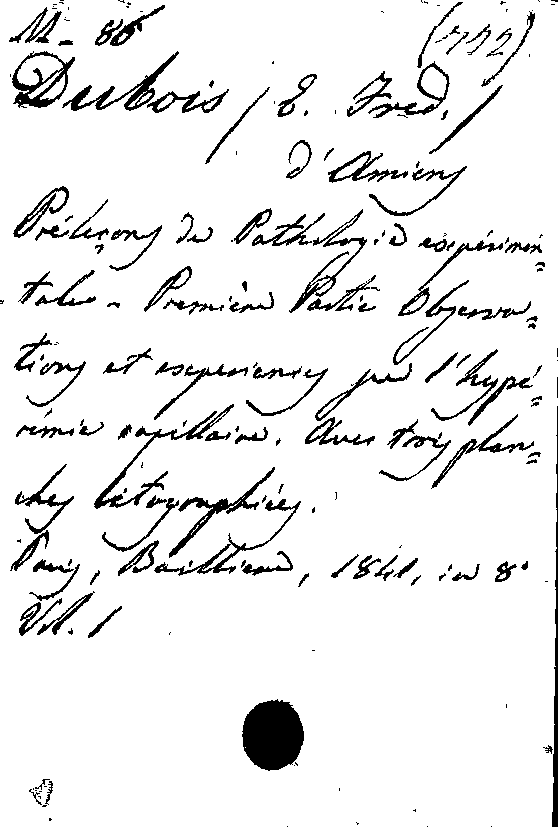 M - 86 (772)
Dubois / E. Fred. /
d'Amiens
Préleçons de Pathologie expérimen=
tale - Première Partie Observa=
tions et experiences sur l'hypé=
rémie capillaire. Avec trois plan=
ches litographiées.
Paris, Baillière, 1841, in 8°
Vol. 1